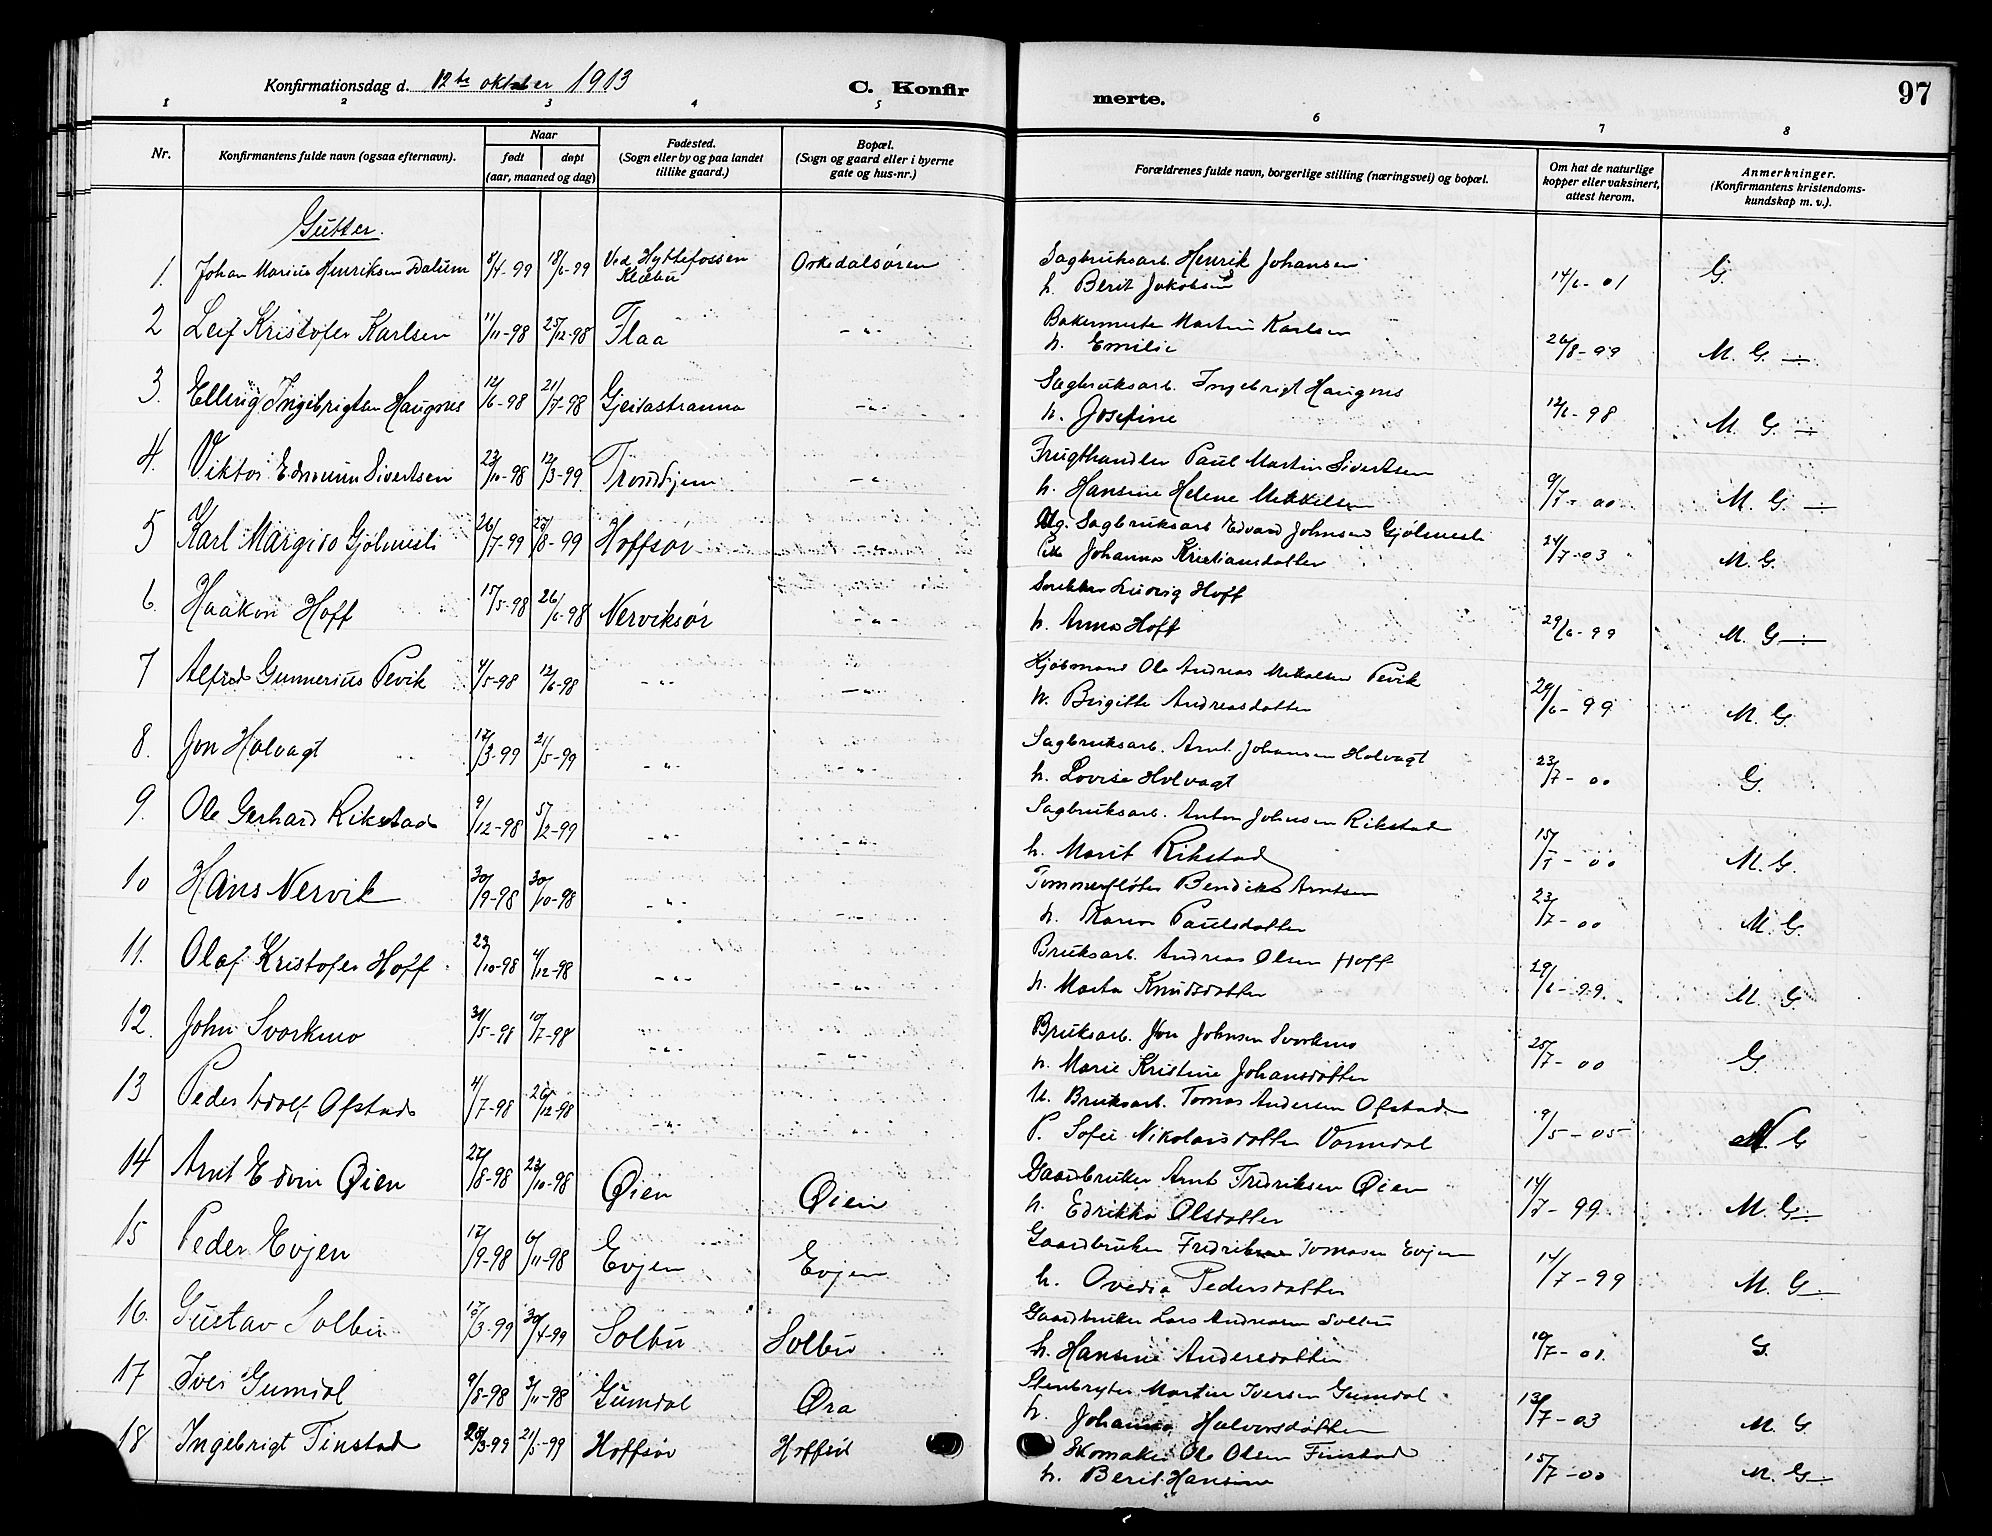 Konfirmationsdag d. 12te oktober 1913
C. Konfir
merte.
97
1 2 3 4 5 6 7 8
Nr.
Konfirmantens fulde navn (ogsaa efternavn).
Naar
født
døpt
(aar, maaned og dag)
Fødested.
(Sogn eller by og paa landet
tillike gaard.)
Bopæl.
(Sogn og gaard eller i byerne
gate og hus-nr.)
Forældrenes fulde navn, borgerlige stilling (næringsvei) og bopæl.
Om hat de naturlige
kopper eller vaksinert,
attest herom.
Anmerkninger.
(Konfirmantens kristendoms-
kundskap m. v.).
Gutter.
1. Johan Marius Henriksen Dalum 8/4-99 18/6-99 Ved Hyttefossen Klæbu Orkedalsøren Sagbruksarb. Henrik Johansen 14/6-01 G.
h. Berit Jakobsen
2 Leif Kristofer Karlsen 11/11-98 25/12-98 Flaa -"- Bakermester Martin Karlsen 26/8-99 M. G.-
h. Emilie
3. Elling Ingebrigtsen Haugnes 12/6-98 21/7-98 Gjeitastranna -"- Sagbruksarb. Ingebrigt Haugnes 12/6-98 M. G.-
h. Josefine
4. Viktor Edmunn Sivertsen 23/10-98 12/3-99 Trondhjem -"- Frugthandler Paul Martin Sivertsen 9/7-00 M. G.-
h. Hansine Helene Mikkelsen
5 Karl Margido Gjølmesli 26/7-99 27/8-99 Hoffsør -"- Ug. Sagbruksarb Edvard Johnsen Gjølmesli 24/7-03 M. G.
Johanna Kristiansdatter
6. Haakon Hoff 15/5-98 26/6-98 Nerviksør -"- Snekker Ludvig Hoff 29/6-99 M. G.-
h. Anna Hoff
7 Alfred Gunnerius Pevik 4/5-98 12/6-98 -"- -"- Kjøbmand Ole Andreas Mikalsen Pevik 29/6-99 M. G.
h. Birgitte Andreasdatter
8. Jon Holvagt 12/3-99 21/5-99 -"- -"- Sagbruksarb. Arnt Johansen Holvagt 23/7-00 G.
h. Lovise Holvagt
9. Ole Gerhard Rikstad 9/12-98 5/2-99 -"- -"- Sagbruksarb. Anton Johnsen Rikstad 15/7-00 M. G.
h. Marit Rikstad
10 Hans Nervik 30/9-98 30/10-98 -"- -"- Tømmerfløter Bendik Arntsen 23/7-00 M. G.
h. Karen Paulsdatter
11. Olaf Kristofer Hoff 23/10-98 4/12-98 -"- -"- Bruksarb. Andreas Olsen Hoff 29/6-99. M. G
h. Marta Knudsdatter
12. John Svorkmo 30/5-98 10/7-98 -"- -"- Bruksarb. Jon Johnsen Svorkmo 25/7-00 G.
h. Marie Kristine Johansdatter
13 Peder Adolf Ofstad 4/7-98 26/12-98 U. Bruksarb. Tomas Andersen Ofstad 9/5-05 N. G
P. Sofie Nikolaisdatter Vormdal
14 Arnt Edvin Øien 27/8-98 23/10-98 Øien Øien Gaardbruker Arnt Fredriksen Øien 14/7-99. M. G.-
h. Edrikka Olsdatter
15 Peder Evjen 17/9-98 6/11-98 Evjen Evjen Gaardbruker Fredrik Tomasen Evjen 14/7-99 M. G.
h. Ovedia Pedersdatter
16. Gustav Solbu 17/3-99 30/4-99 Solbu Solbu Gaardbruker Lars Andreasen Solbu 10/7-01. G.
h. Hansine Andersdatter
17 Iver Gumdal 9/8-98 3/11-98 Gumdal Øra Stenbryter Martin Iversen Gumdal 13/7-03 M. G.
h. Johanna Halvorsdatter
18. Ingebrigt Finstad 25/3-99 21/5-99 Hoffsør Hoffsør Skomaker Ole Olsen Finstad 15/7-00 M. G.-
h. Berit Hansine